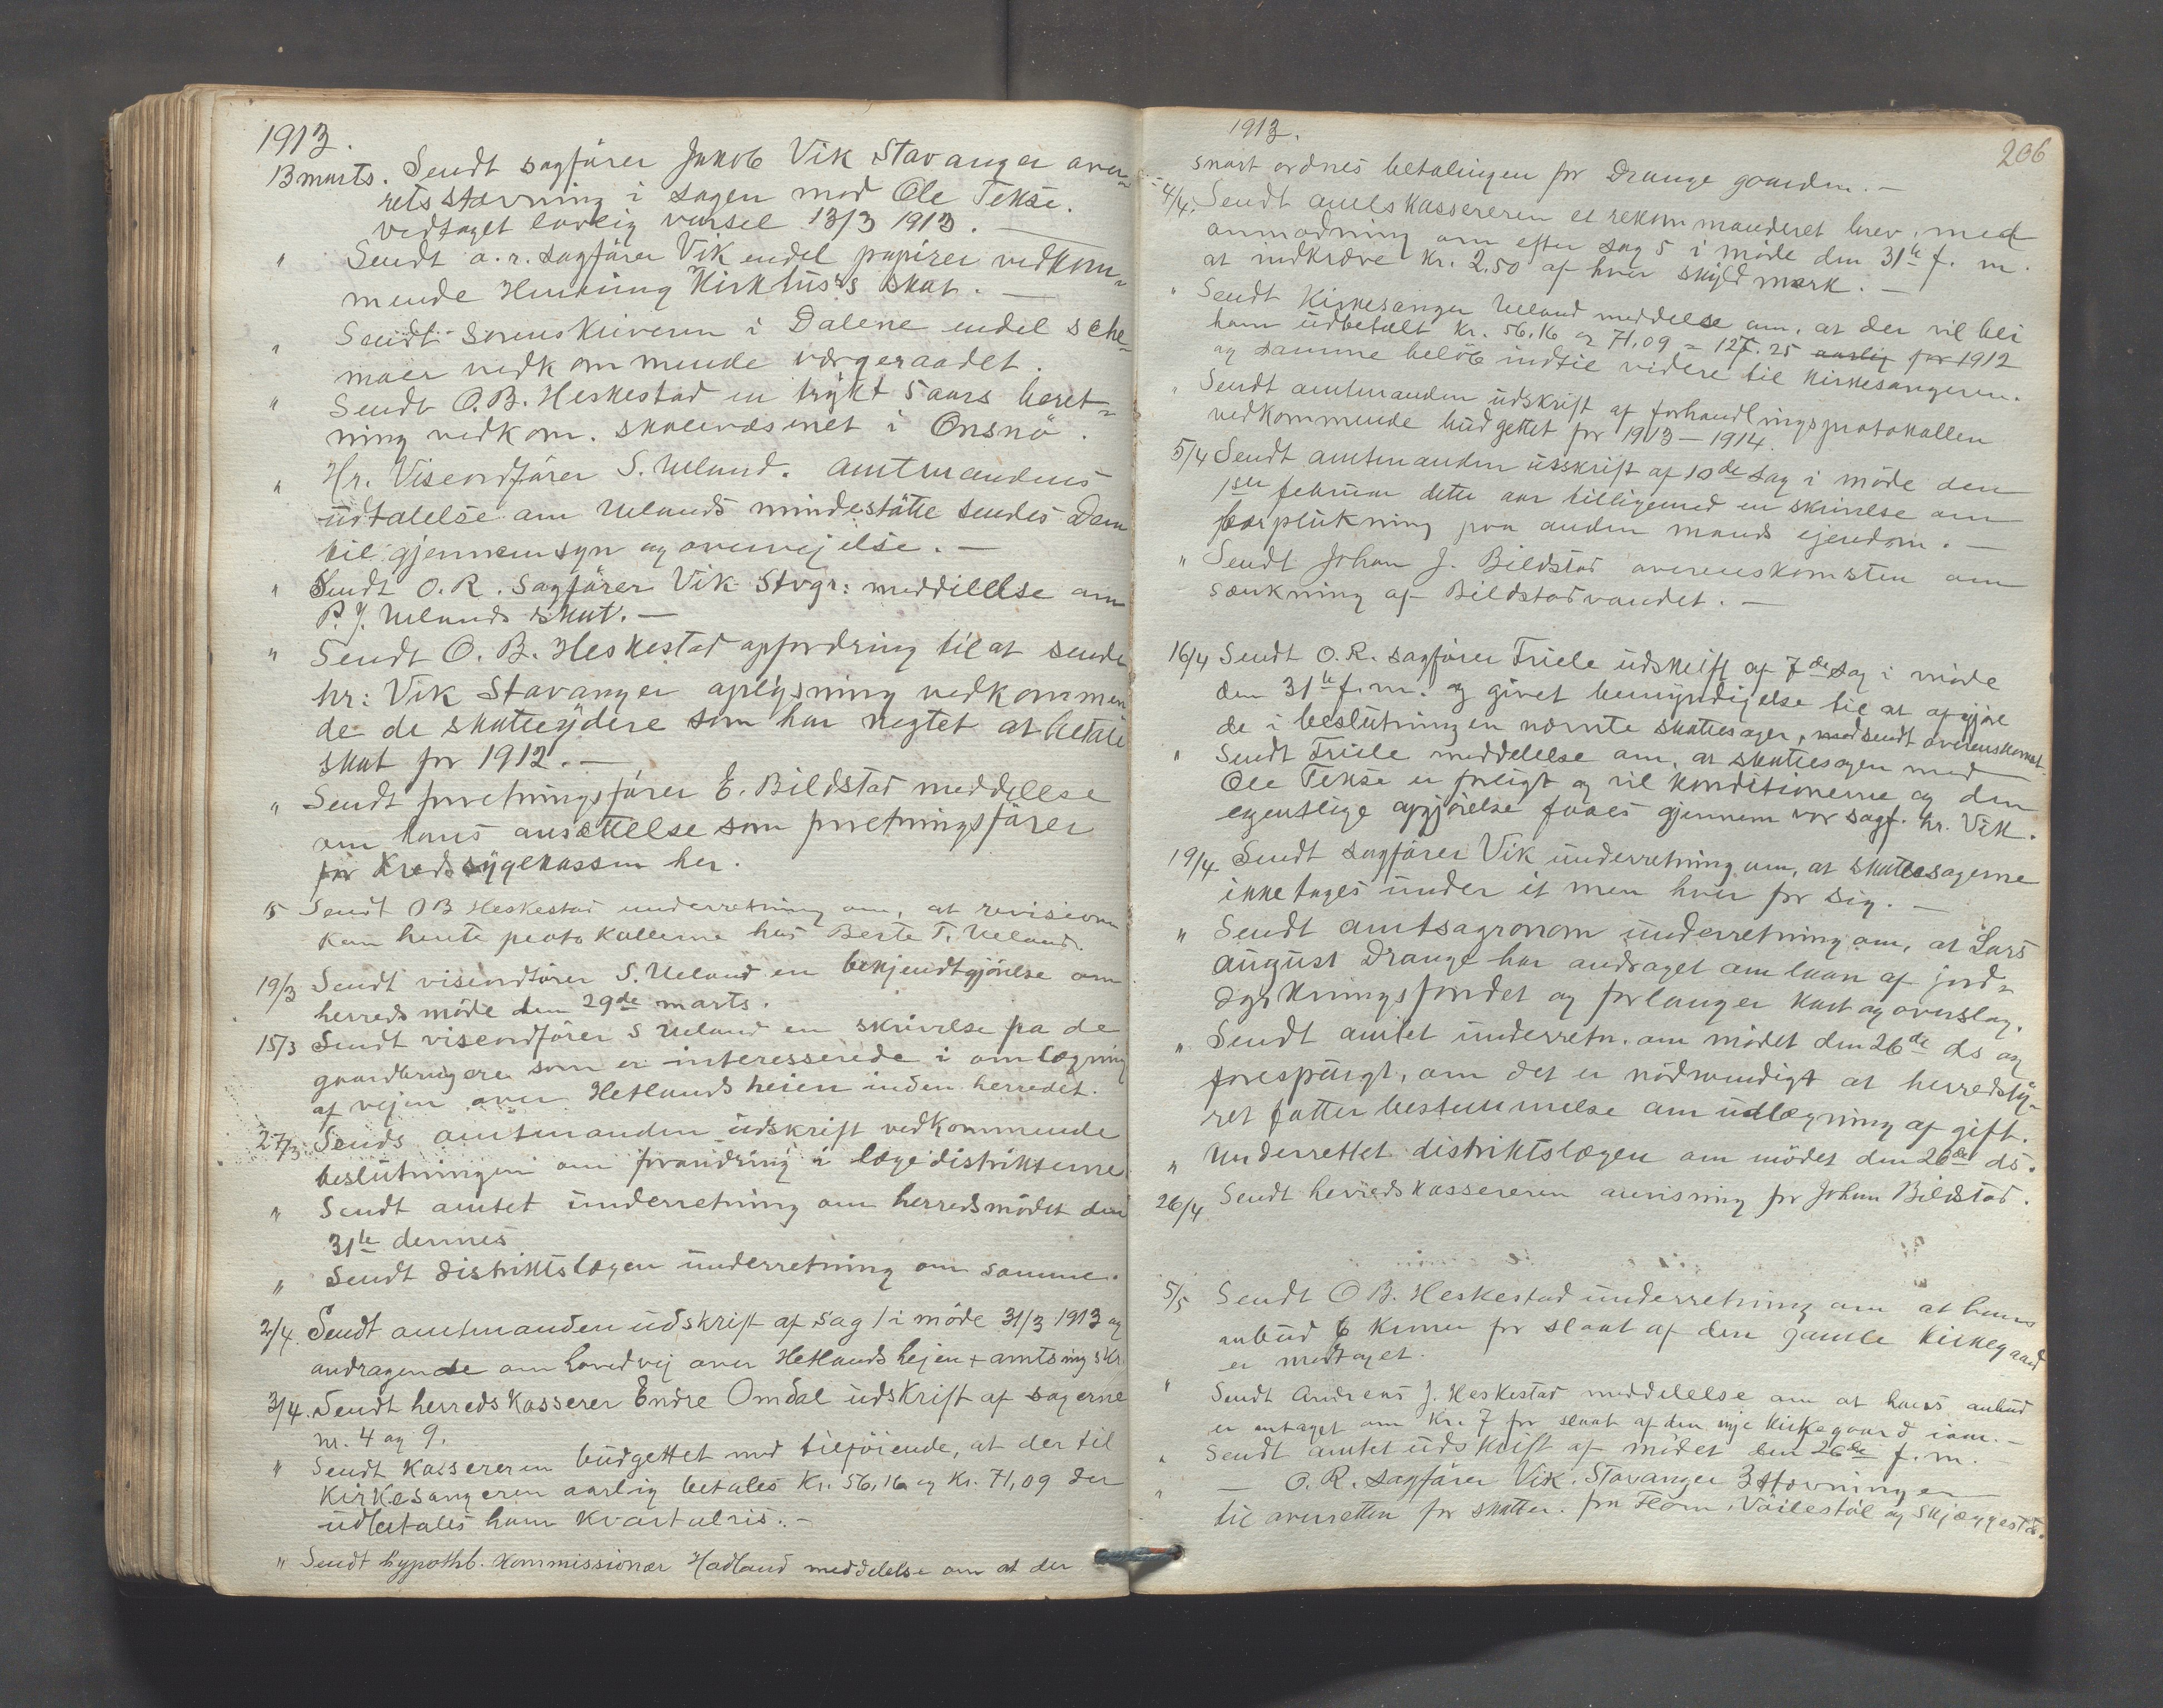 1913.
13 marts. Sendt sagfører Jakob Vik Stavanger over-
retsstævning i sagen mod Ole Tekse.
vedtaget lovlig varsel 13/3 1913. —
" Sendt o.r. sagfører Vik endel papirer vedkom-
mende Henning Kirkhus's skat. —
" Sendt Sorenskriveren i Dalene endel sche-
maer vedkommende værgeraadet.
" Sendt O.B. Heskestad en trykt 5 aars beret-
ning vedkom. skolevæsenet i Onsnö.
" Hr. Viseordfører S. Ueland. Amtmandens
udtalelse om Uelands mindestøtte sendes Dem
til gjennemsyn og overvejelse. —
" Sendt O.R. Sagfører Vik Stvgr: meddelelse om
P.J. Uelands skat. —
" Sendt O.B. Heskestad opfordring til at sende
hr: Vik Stavanger oplysning vedkommen-
de de skatteydere som har negtet at betale
skat for 1912. —
" Sendt forretningsfører E. Bildstad meddelelse
om hans ansættelse som forretningsfører
for Kredssygekassen her.
15 Sendt O B Heskestad underretning om, at revisionen
kan hente protokollerne hos Berte T. Ueland.
19/3 Sendt viseordfører S. Ueland en bekjendtgjørelse om
herredsmøde den 29de marts.
15/3 Sendt viseordfører S Ueland en skrivelse fra de
gaardbrugere som er interesserede i omlægning
af vejen over Hetlandsheien inden herredet.
27/3. Sends amtmanden udskrift vedkommende
beslutningen om forandring i lægedistrikterne
" Sendt amtet underretning om herredsmødet den
31te dennes
" Sendt distriktslægen underretning om samme.
2/4. Sendt amtmanden udskrift af sag 1 i møde 31/3 1913 og
andragende om hovedvej over Hetlandshejen + amtsing skr.
3/4. Sendt herredskasserer Endre Omdal udskrift af sagerne
nr. 4 og 9.
" Sendt kassereren budgettet med tilføiende, at der til
Kirkesangeren aarlig betales Kr. 56,16 og Kr. 71,09 der
udbetales ham kvartalvis. —
" Sendt hypothb. kommissionær Hadland meddelelse om at der
1913.
206
snart ordnes betalingen for Drange gaarden. —
4/4. Sendt amtskassereren et rekommanderet brev, med
anmodning om efter sag 5 i møde den 31te f. m.
at indkræve kr. 2,50 af hver skyldmark. —
" Sendt Kirkesanger Ueland meddelse om, at der vil bli
ham udbetalt kr. 56,16 og 71,09 = 127,25 aarlig for 1912
og samme beløb indtil videre til kirkesangeren.
" Sendt amtmanden udskrift af forhandlingsprotokollen
vedkommende budgettet for 1913—1914.
5/4 Sendt amtmanden udskrift af 10de sag i møde den
1ste februar dette aar tilligemed en skrivelse om
bærplukning paa anden mands ejendom. —
" Sendt Johan J. Bildstad overenskomsten om
sænkning af Bildstadvandet. —
16/4 Sendt O.R. sagfører Friele udskrift af 7de sag i møde
den 31te f.m. og givet bemyndigelse til at afgjøre
de i beslutningen nævnte skattesager, medsendt overenskomst.
" Sendt Friele meddelelse om, at skattesagen mod
Ole Tekse er forligt og vil konditionerne og den
egentlige opgjørelse faaes gjennem vor sagf. hr. Vik.
19/4. Sendt sagfører Vik underretning om, at skattesagerne
ikke tages under et men hver for sig. —
" Sendt amtsagronom underretning om, at Lars
August Drange har andraget om laan af jord-
dyrkningsfondet og forlanger kart og overslag.
" Sendt amtet underretn. om mødet den 26de ds og
forespurgt, om det er nødvendigt at herredsty-
ret fatter bestemmelse om udlægning af gift.
" Underrettet distriktslægen om mødet den 26de ds.
26/4 Sendt herredskassereren anvisning for Johan Bildstad.
5/5 Sendt O B. Heskestad underretning om at hans
anbud 6 kroner for slaat af den gamle kirkegaard
er modtaget.
" Sendt Andreas J. Heskestad meddelelse om at hans anbud
er antaget om Kr. 7 for slaat af den nye kirkegaard iaar. —
" Sendt amtet udskrift af mødet den 26de f. m.
" — O.R. sagfører Vik. Stavanger 3 stævninger
til overretten for skatter. fra Flom, Våilestøl og Skjæggestad.